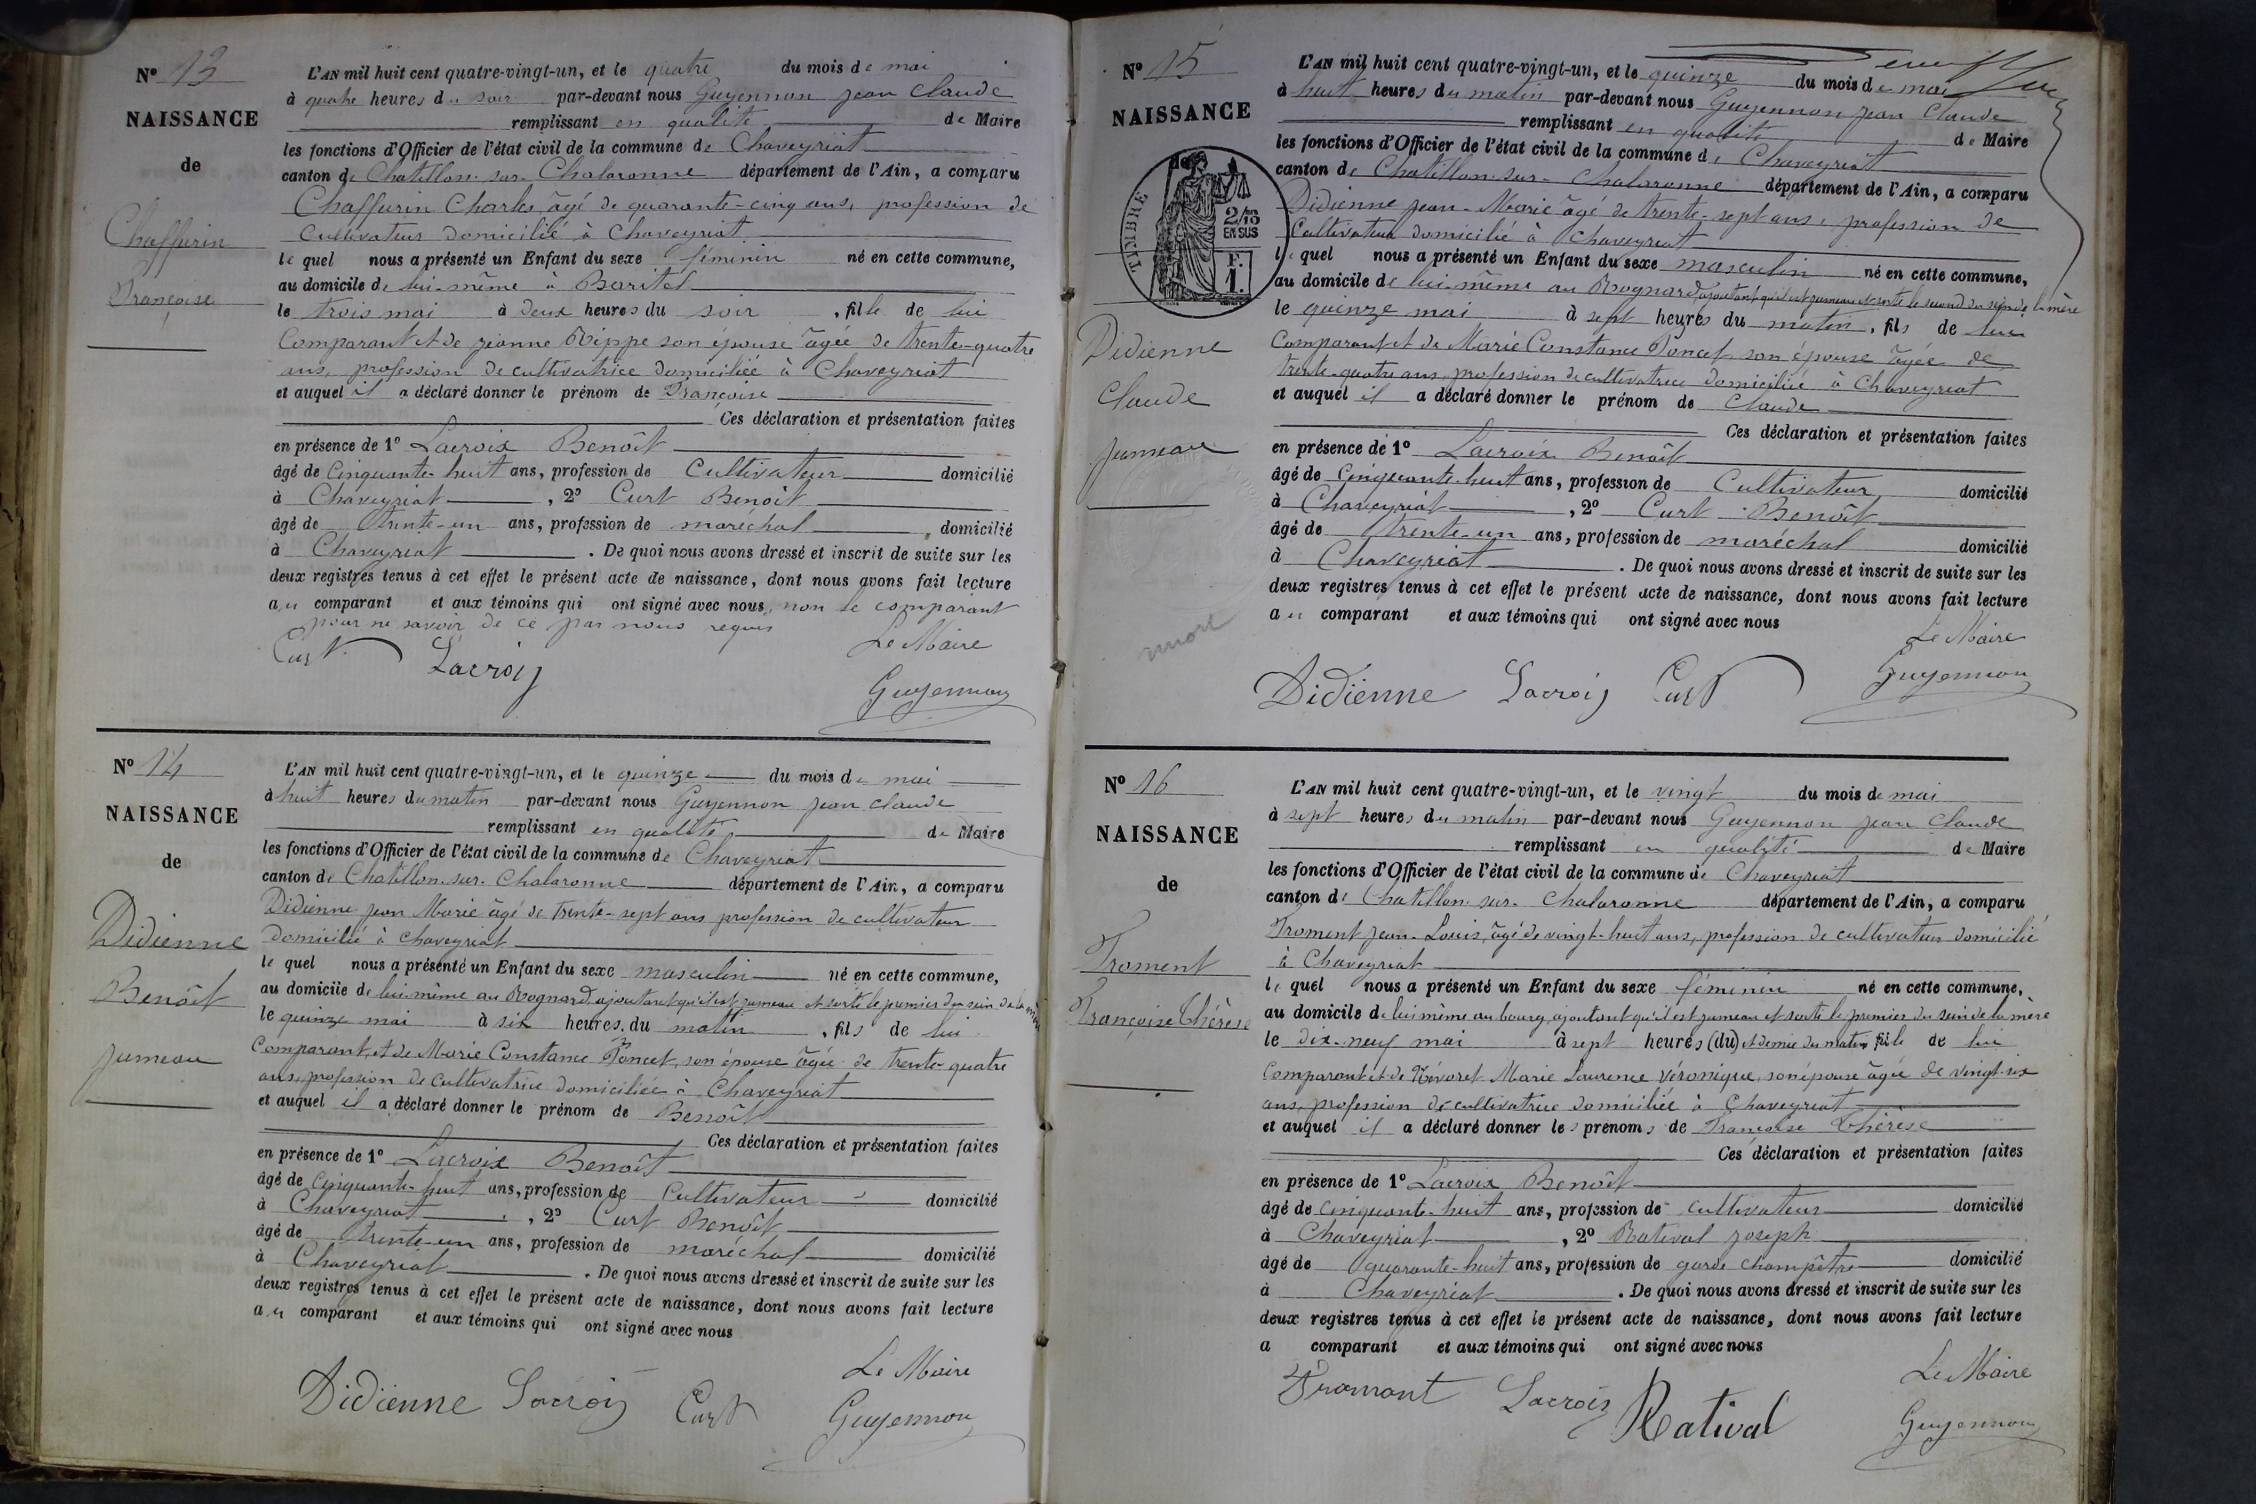 N° 13
NAISSANCE
de
Chaffurin
Françoise
L'AN mil huit cent quatre-vingt-un, et le quatre du mois de mai
à quatre heures du soir par-devant nous Guyennon jean Claude
remplissant en qualité de Maire
les fonctions d'Officier de l'état civil de la commune de Chaveyriat
canton de Chatillon-sur-Chalaronne département de l'Ain, a comparu
Chaffurin Charles âgé de quarante-cinq ans, profession de
Cultivateur domicilié à Chaveyriat
le quel nous a présenté un Enfant du sexe féminin né en cette commune,
au domicile de lui-même à Baritel
le trois mai à deux heures du soir, fille de lui
Comparant et de jeanne Rippe son épouse âgée de trente-quatre
ans, profession de cultivatrice domiciliée à Chaveyriat
et auquel il a déclaré donner le prénom de Françoise
Ces déclaration et présentation faites
en présence de 1° Lacroix Benoît
âgé de Cinquante-huit ans, profession de Cultivateur domicilié
à Chaveyriat, 2° Curt Benoît
âgé de trente-un ans, profession de maréchal, domicilié
à Chaveyriat. De quoi nous avons dressé et inscrit de suite sur les
deux registres tenus à cet effet le présent acte de naissance, dont nous avons fait lecture
au comparant et aux témoins qui ont signé avec nous, non le comparant
pour ne savoir de ce par nous requis
Le Maire
Curt Lacroix
Guyennon
N° 14
NAISSANCE
de
Didienne
Benoît
jumeau
L'AN mil huit cent quatre-vingt-un, et le quinze du mois de mai
à huit heures du matin par-devant nous Guyennon jean Claude
remplissant en qualité de Maire
les fonctions d'Officier de l'état civil de la commune de Chaveyriat
canton de Chatillon-sur-Chalaronne département de l'Ain, a comparu
Didienne jean Marie âgé de trente-sept ans profession de cultivateur
domicilié à Chaveyriat
le quel nous a présenté un Enfant du sexe masculin né en cette commune,
au domicile de lui-même au Rognard, ajoutant qu'il est jumeau et sorti le premier du sein de la mère
le quinze mai à six heures du matin, fils de lui
Comparant, et de Marie Constance Poncet, son épouse âgée de trente-quatre
ans, profession de cultivatrice domiciliée à Chaveyriat
et auquel il a déclaré donner le prénom de Benoît
Ces déclaration et présentation faites
en présence de 1° Lacroix Benoît
âgé de Cinquante-huit ans, profession de Cultivateur domicilié
à Chaveyriat, 2° Curt Benoît
âgé de trente-un ans, profession de maréchal domicilié
à Chaveyriat. De quoi nous avons dressé et inscrit de suite sur les
deux registres tenus à cet effet le présent acte de naissance, dont nous avons fait lecture
au comparant et aux témoins qui ont signé avec nous
Le Maire
Didienne Lacroix Curt
Guyennon
N° 15
NAISSANCE
TIMBRE
2/10
EN SUS
F.
1.
Didienne
Claude
jumeau
mort
L'AN mil huit cent quatre-vingt-un, et le quinze du mois de mai
à huit heures du matin par-devant nous Guyennon jean Claude
remplissant en qualité de Maire
les fonctions d'Officier de l'état civil de la commune de Chaveyriat
canton de Chatillon-sur-Chalaronne département de l'Ain, a comparu
Didienne jean-Marie âgé de trente-sept ans, profession de
Cultivateur domicilié à Chaveyriat
le quel nous a présenté un Enfant du sexe masculin né en cette commune,
au domicile de lui-même au Rognard, ajoutant qu'il est jumeau et sorti le second du sein de la mère
le quinze mai à sept heures du matin, fils de lui
Comparant et de Marie Constance Poncet son épouse âgée de
trente-quatre ans, profession de cultivatrice domiciliée à Chaveyriat
et auquel il a déclaré donner le prénom de Claude
Ces déclaration et présentation faites
en présence de 1° Lacroix Benoît
âgé de Cinquante-huit ans, profession de Cultivateur domicilié
à Chaveyriat, 2° Curt Benoît
âgé de trente-un ans, profession de maréchal domicilié
à Chaveyriat. De quoi nous avons dressé et inscrit de suite sur les
deux registres tenus à cet effet le présent acte de naissance, dont nous avons fait lecture
au comparant et aux témoins qui ont signé avec nous
Le Maire
Didienne Lacroix Curt
Guyennon
N° 16
NAISSANCE
de
Froment
Françoise Thérèse
L'AN mil huit cent quatre-vingt-un, et le vingt du mois de mai
à sept heures du matin par-devant nous Guyennon jean Claude
remplissant en qualité de Maire
les fonctions d'Officier de l'état civil de la commune de Chaveyriat
canton de Chatillon-sur-Chalaronne département de l'Ain, a comparu
Froment jean-Louis, âgé de vingt-huit ans, profession de cultivateur domicilié
à Chaveyriat
le quel nous a présenté un Enfant du sexe féminin né en cette commune,
au domicile de lui même au bourg, ajoutant qu'il est jumeau et sorti le premier du sein de la mère
le dix-neuf mai à sept heures (du) et demie du matin fille de lui
Comparant et de Névoret Marie Laurence Véronique, son épouse âgée de vingt-six
ans, profession de cultivatrice domiciliée à Chaveyriat
et auquel il a déclaré donner les prénoms de Françoise Thérèse
Ces déclaration et présentation faites
en présence de 1° Lacroix Benoît
âgé de cinquante-huit ans, profession de cultivateur domicilié
à Chaveyriat, 2° Ratival joseph
âgé de quarante-huit ans, profession de garde champêtre domicilié
à Chaveyriat. De quoi nous avons dressé et inscrit de suite sur les
deux registres tenus à cet effet le présent acte de naissance, dont nous avons fait lecture
a comparant et aux témoins qui ont signé avec nous
Le Maire
Fromont Lacroix Ratival
Guyennon